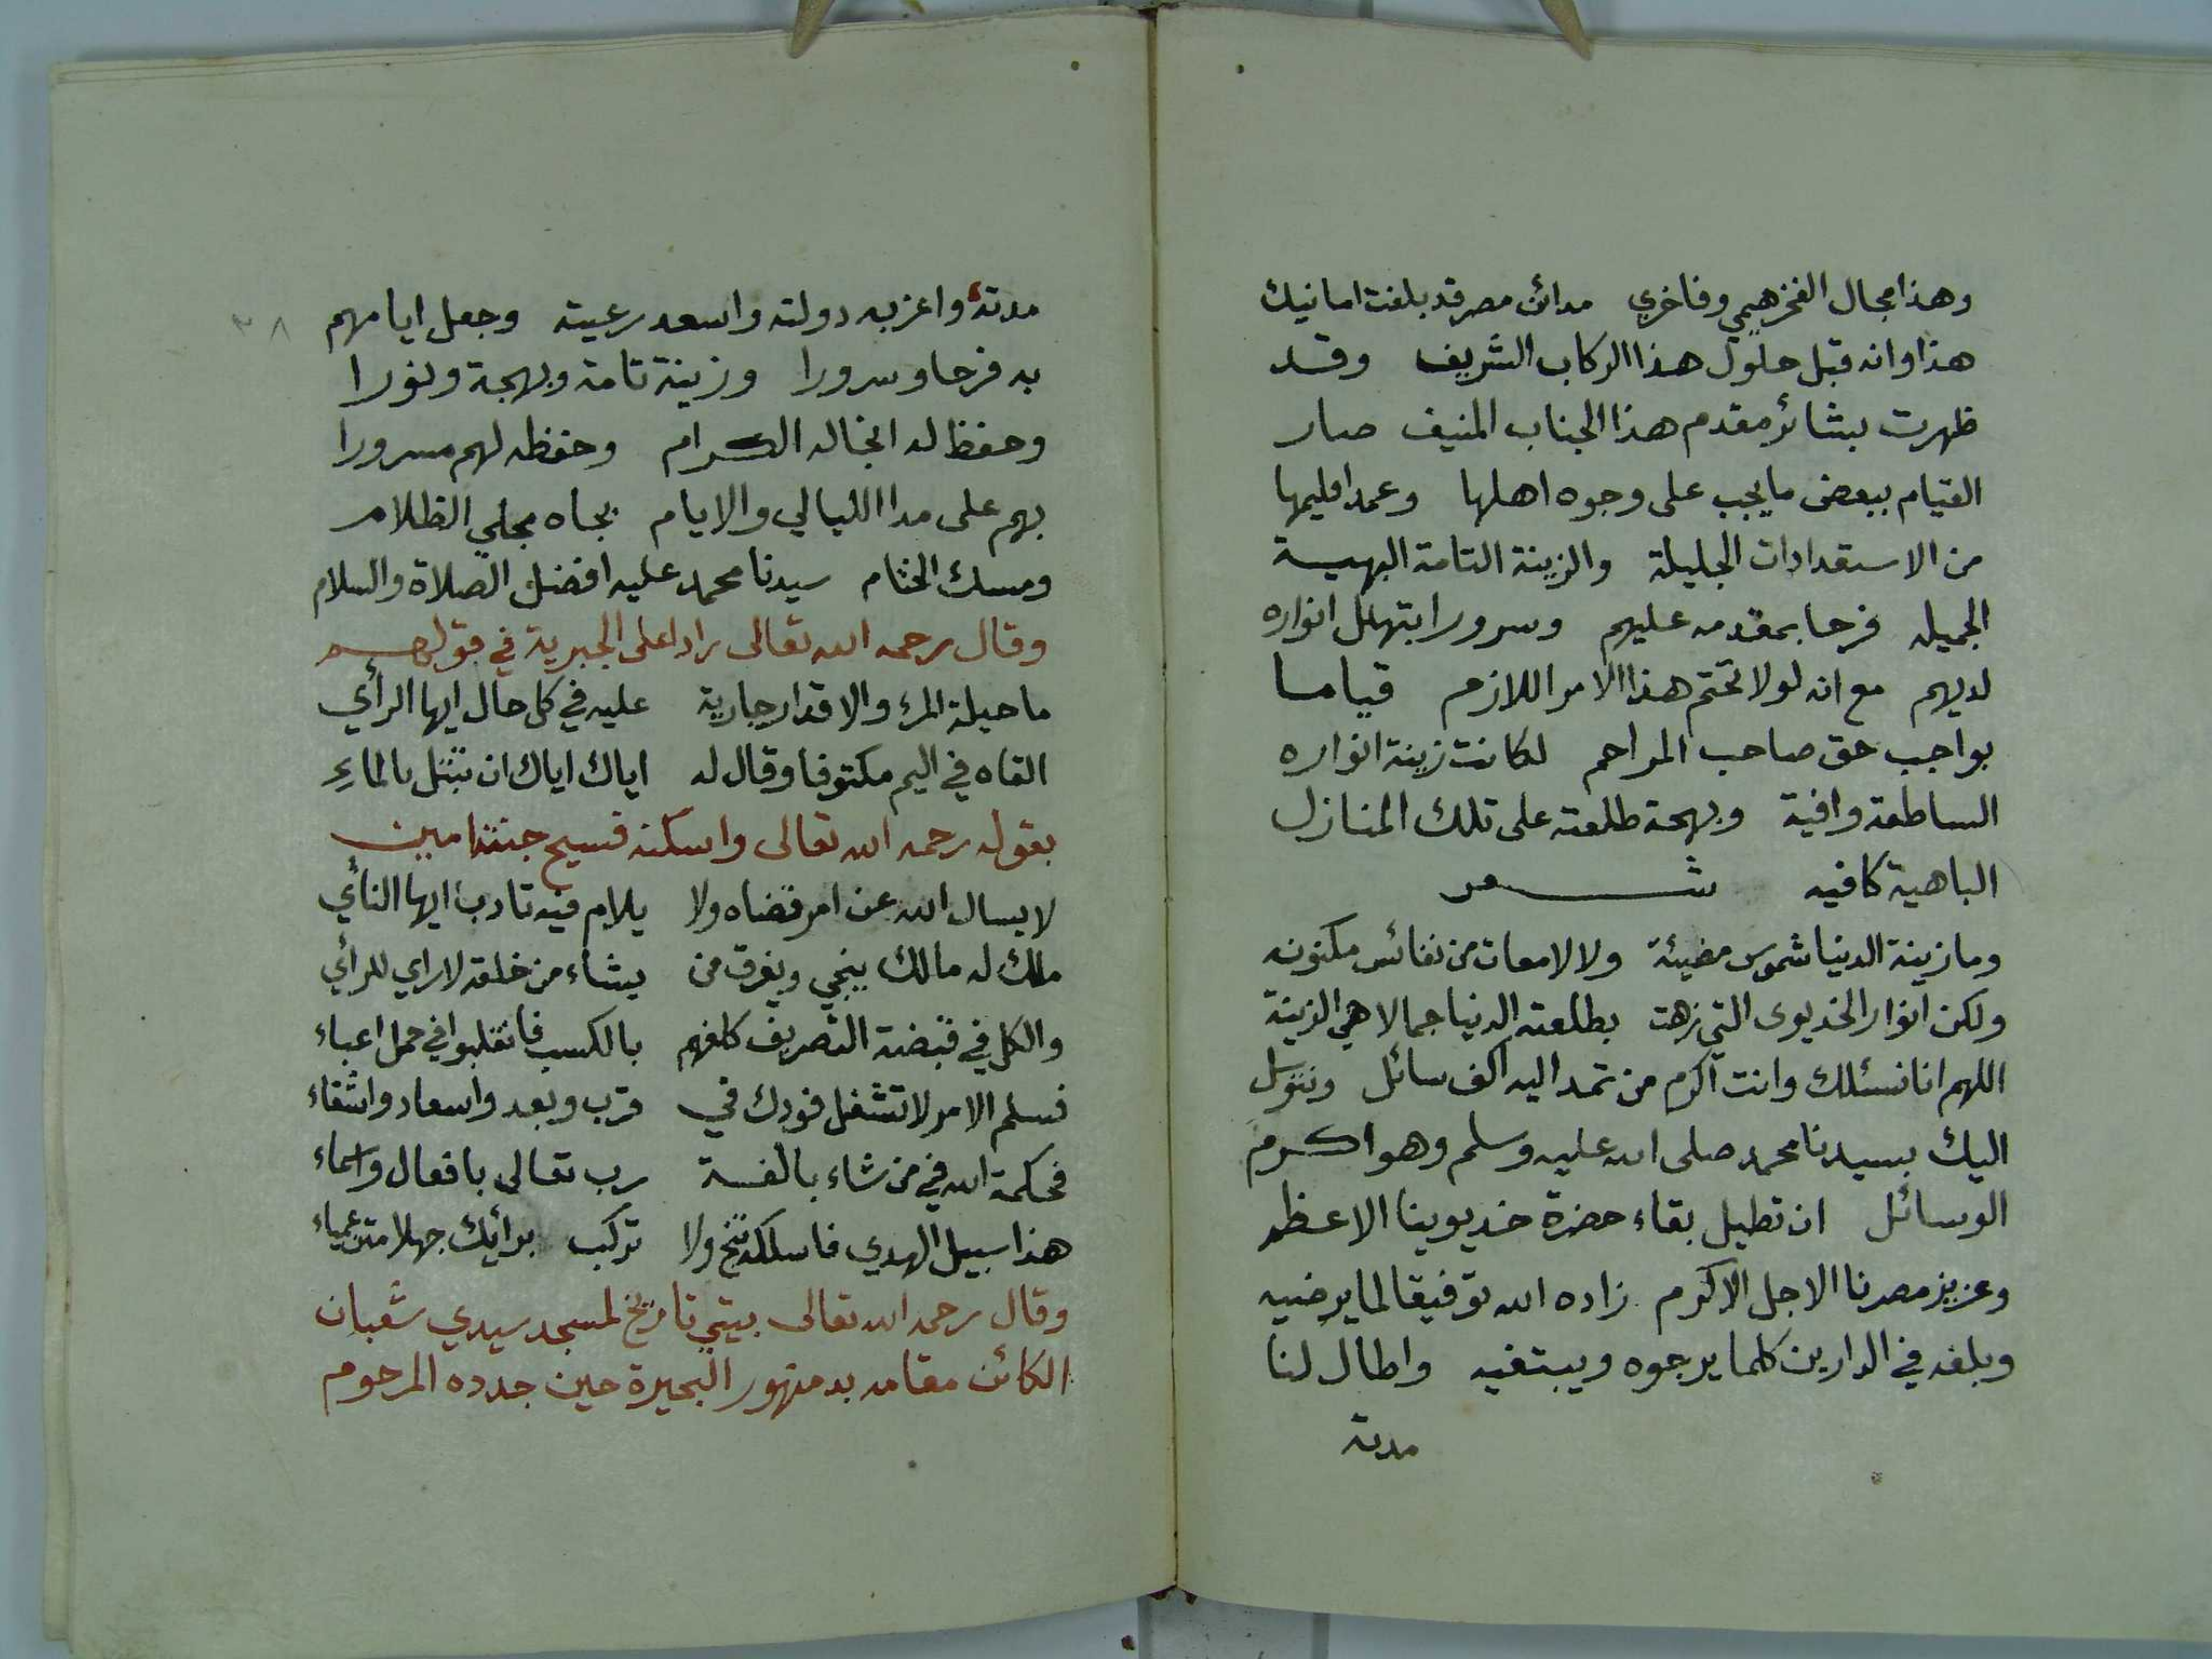 وهذا مجال الفخر هيمي وفاخري مدائن مصر قد بلغت امانيك
هذا وانه قبل حلول هذا الركاب الشريف وقد
ظهرت بشائر مقدم هذا الجناب المنيف صار
القيام ببعض ما يجب على وجوه اهلها وعمد اقليمها
من الاستعدادات الجليلة والزينة التامة البهية
الجميله فرحا بمقدمه عليهم وسرورا بتهلل انواره
لديهم مع انه لولا تحتم هذا الامر اللازم قياما
بواجب حق صاحب المراحم لكانت زينة انواره
الساطعة وافية وبهجة طلعته على تلك المنازل
الباهية كافيه شعر
وما زينة الدنيا شموس مضيئة ولا لامعات من نفائس مكنونه
ولكن انوار الخديوى التي زهت بطلعته الدنيا جمالا هي الزينة
اللهم انا نسئلك وانت اكرم من تمد اليه اكف سائل ونتوسل
اليك بسيدنا محمد صلى الله عليه وسلم وهو اكرم
الوسائل ان تطيل بقاء حضرة خديوينا الاعظم
وعزيز مصرنا الاجل الاكرم زاده الله توفيقا لما يرضيه
وبلغه في الدارين كلما يرجوه ويبتغيه واطال لنا
مدته
٣٨
مدته واعز به دولته واسعد رعيته وجعل ايامهم
به فرحا وسرورا وزينة تامة وبهجة ونورا
وحفظ له انجاله الكرام وحفظه لهم مسرورا
بهم على مدا الليالي والايام بجاه مجلي الظلام
ومسك الختام سيدنا محمد عليه افضل الصلاة والسلام
وقال رحمه الله تعالى رادا على الجبرية في قولهم
ما حيلة المرء والاقدار جارية عليه في كل حال ايها الرأي
القاه في اليم مكتوفا وقال له اياك اياك ان تبتل بالماءِ
بقوله رحمه الله تعالى واسكنه فسيح جنته امين
لا يسال الله عن امر قضاه ولا يلام فيه تادب ايها النأي
ملك له مالك ينجي ويغرق من يشاء من خلقه لا راي للرأي
والكل في قبضة التصريف كلفهم بالكسب فانقلبوا في حمل اعباء
فسلم الامر لا تشغل فودك في قرب وبعد واسعاد واشقاء
فحكمة الله في من شاء بالغة رب تعالى بافعال واسماء
هذا سبيل الهدي فاسلكه تنج ولا تركب برأيك جهلا متن عمياء
وقال رحمه الله تعالى بيتي تاريخ لمسجد سيدي شعبان
الكائن مقامه بدمنهور البحيرة حين جدده المرحوم